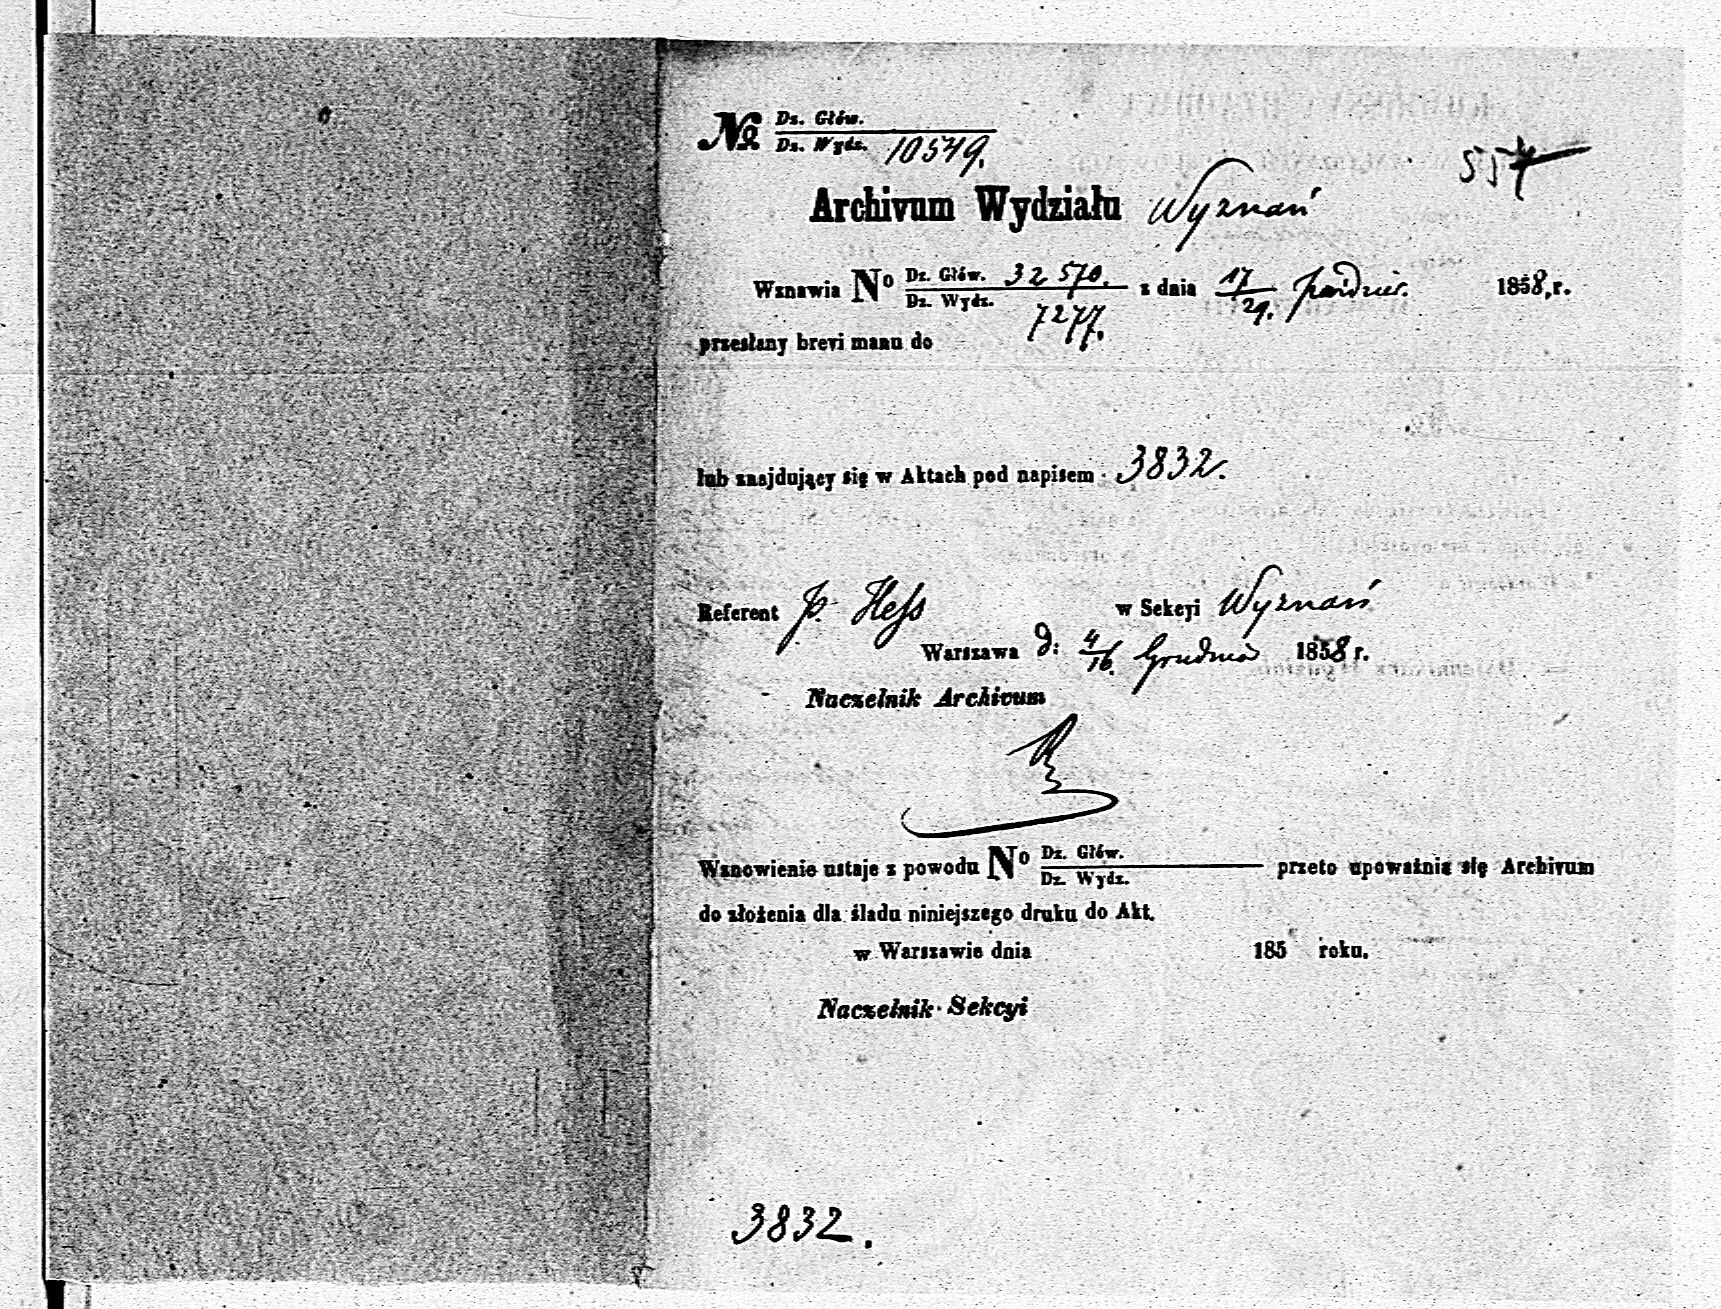 № Dz. Głów.
Dz. Wydz. 10549.
557
Archivum Wydziału Wyznań
Wznawia No Dz. Głów. 32570. z dnia 17/29. paźdnier. 1858, r.
Dz. Wydz. 7277.
przesłany brevi manu do
lub znajdujący się w Aktach pod napisem 3832.
Referent p. Hess w Sekcyi Wyznań
Warszawa d: 4/16. Grudnia 1858 r.
Naczelnik Archivum
Wznowienie ustaje z powodu No Dz. Głów. przeto upoważnia się Archivum
Dz. Wydz.
do złożenia dla śladu niniejszego druku do Akt.
w Warszawie dnia 185 roku.
Naczelnik Sekcyi
3832.